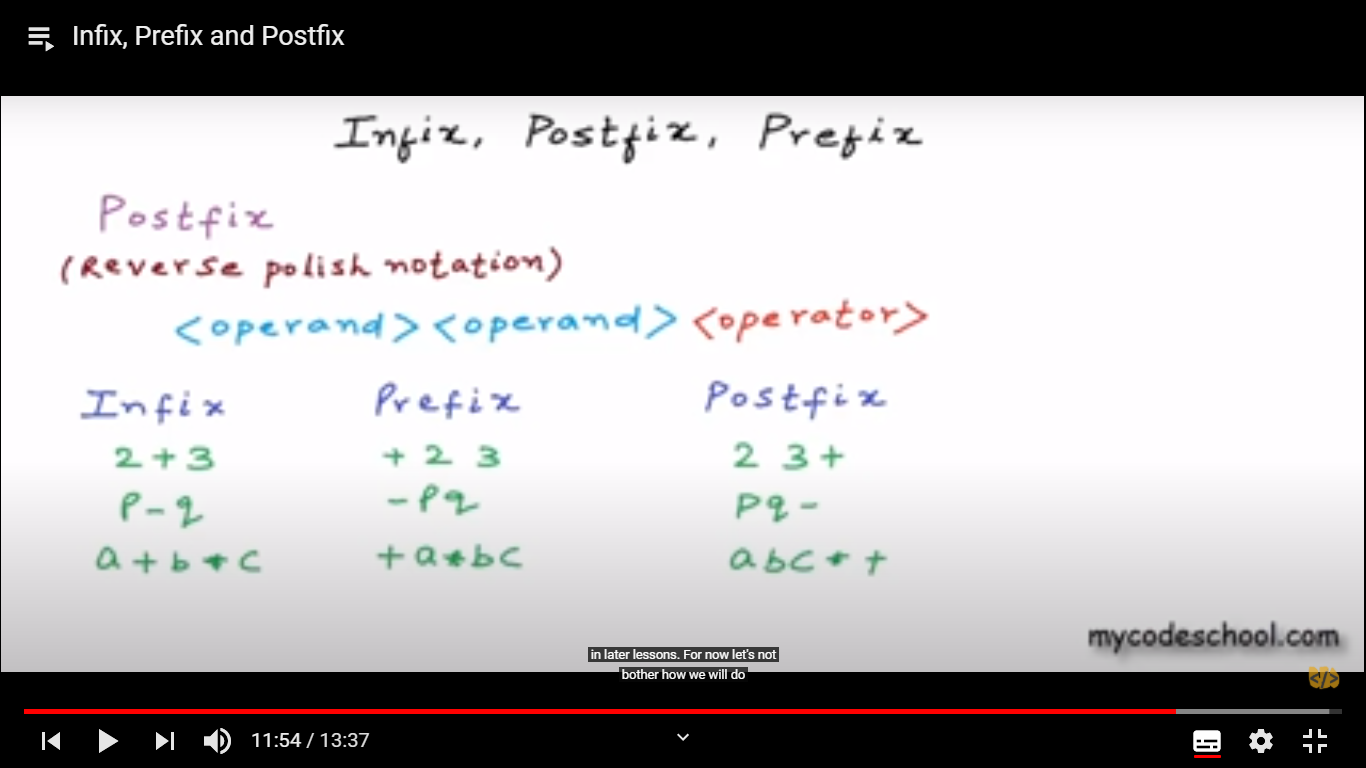 Infix, Prefix and Postfix
Infix, Postfix, Prefix
Postfix
(Reverse polish notation)
<operand> <operand> <operator>
Infix Prefix Postfix
2 + 3 + 2 3 2 3 +
P - q - P q P q -
a + b * c + a * b c a b c * +
mycodeschool.com
in later lessons. For now let's not
bother how we will do
</>
11:54 / 13:37